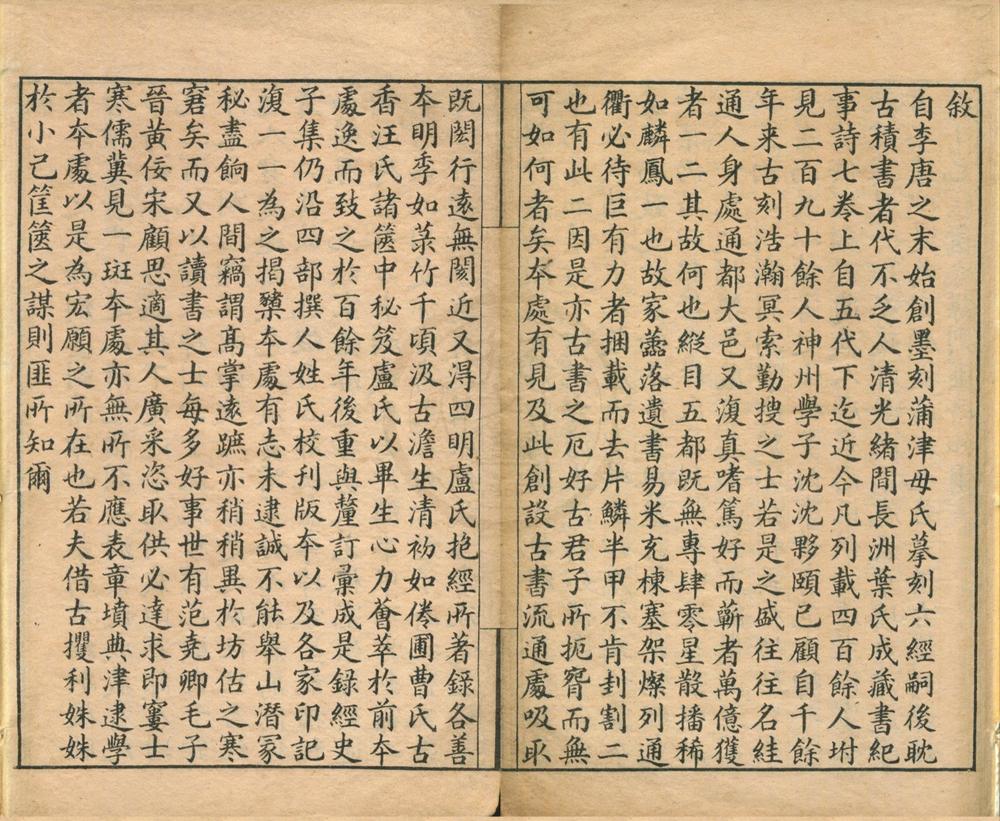 敘
自李唐之末始創墨刻蒲津毋氏摹刻六經嗣後耽
古積書者代不乏人清光緒間長洲葉氏成藏書紀
事詩七卷上自五代下迄近今凡列載四百餘人坿
見二百九十餘人神州學子沈沈夥頤已顧自千餘
年来古刻浩瀚冥索勤搜之士若是之盛往往名絓
通人身處通都大邑又復真嗜篤好而蘄者萬億獲
者一二其故何也縱目五都既無專肆零星散播稀
如麟鳳一也故家蠹落遺書易米充棟塞架燦列通
衢必待巨有力者捆載而去片鱗半甲不肯封割二
也有此二因是亦古書之厄好古君子所扼脔而無
可如何者矣本處有見及此創設古書流通處吸取
既閎行遠無閡近又得四明盧氏抱經所著錄各善
本明季如菉竹千頃汲古澹生清初如倦圃曹氏古
香汪氏諸篋中秘笈盧氏以畢生心力薈萃於前本
處逸而致之於百餘年後重與釐訂彙成是錄經史
子集仍沿四部撰人姓氏校刊版本以及各家印記
復一一為之揭櫫本處有志未逮誠不能舉山潛冢
秘盡餉人間竊謂高掌遠蹠亦稍稍異於坊估之寒
窘矣而又以讀書之士每多好事世有范堯卿毛子
晉黃佞宋顧思適其人廣采恣取供必達求即寠士
寒儒冀見一斑本處亦無所不應表章墳典津逮學
者本處以是為宏願之所在也若夫借古攫利姝姝
於小己筐篋之謀則匪所知爾